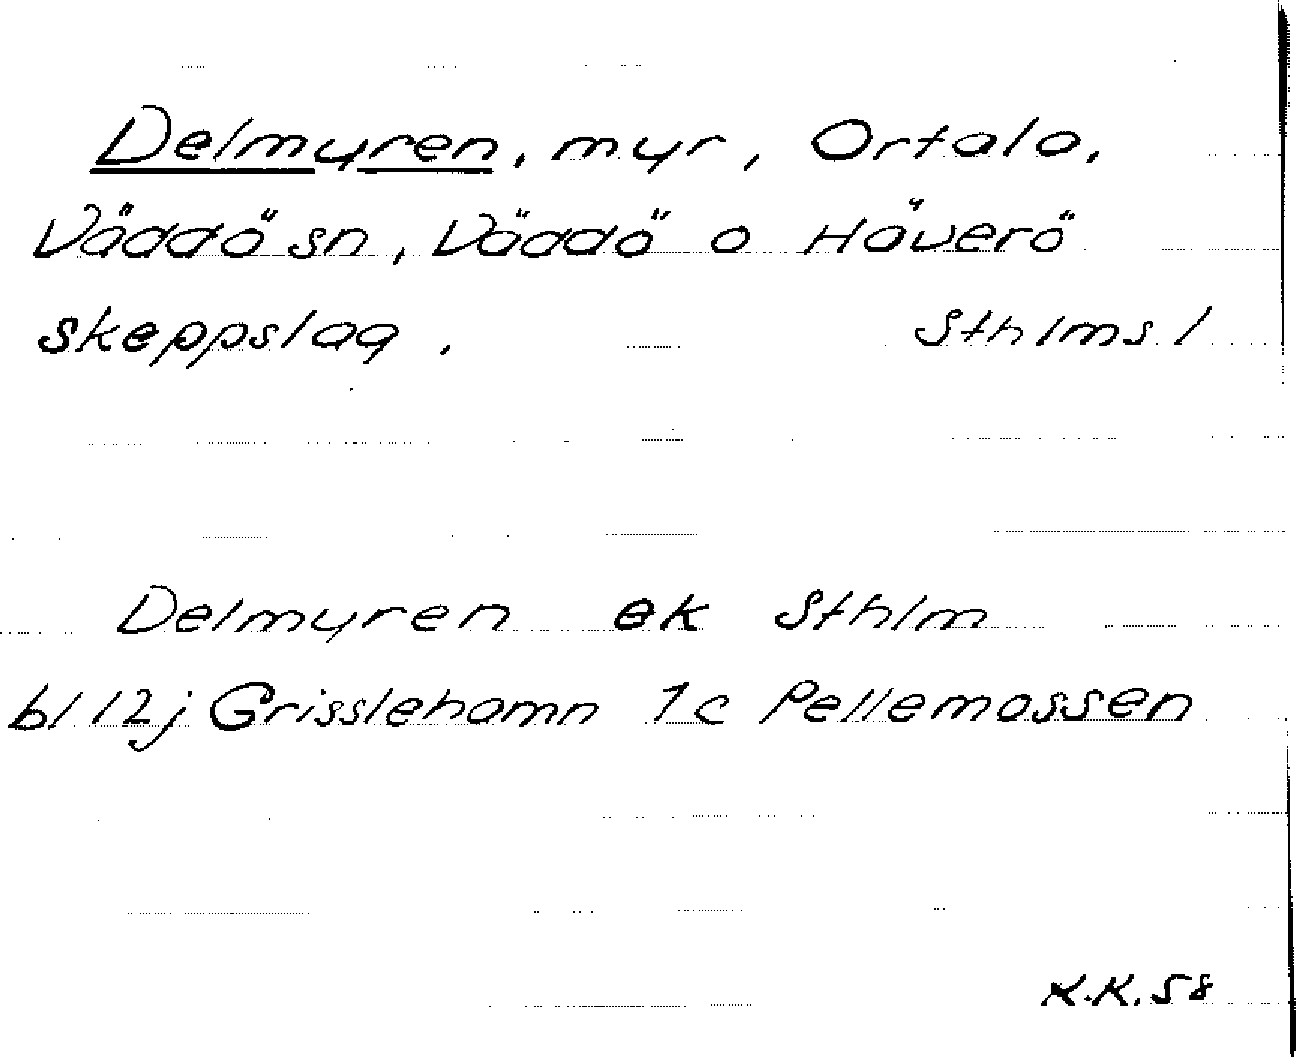 Delmyren, myr, Ortala,
Väddö sn, Väddö o Häverö
skeppslag. Sthlms l
Delmyren ek Sthlm
bl 12j Grisslehamn 1c Pellemossen
K.K. 58